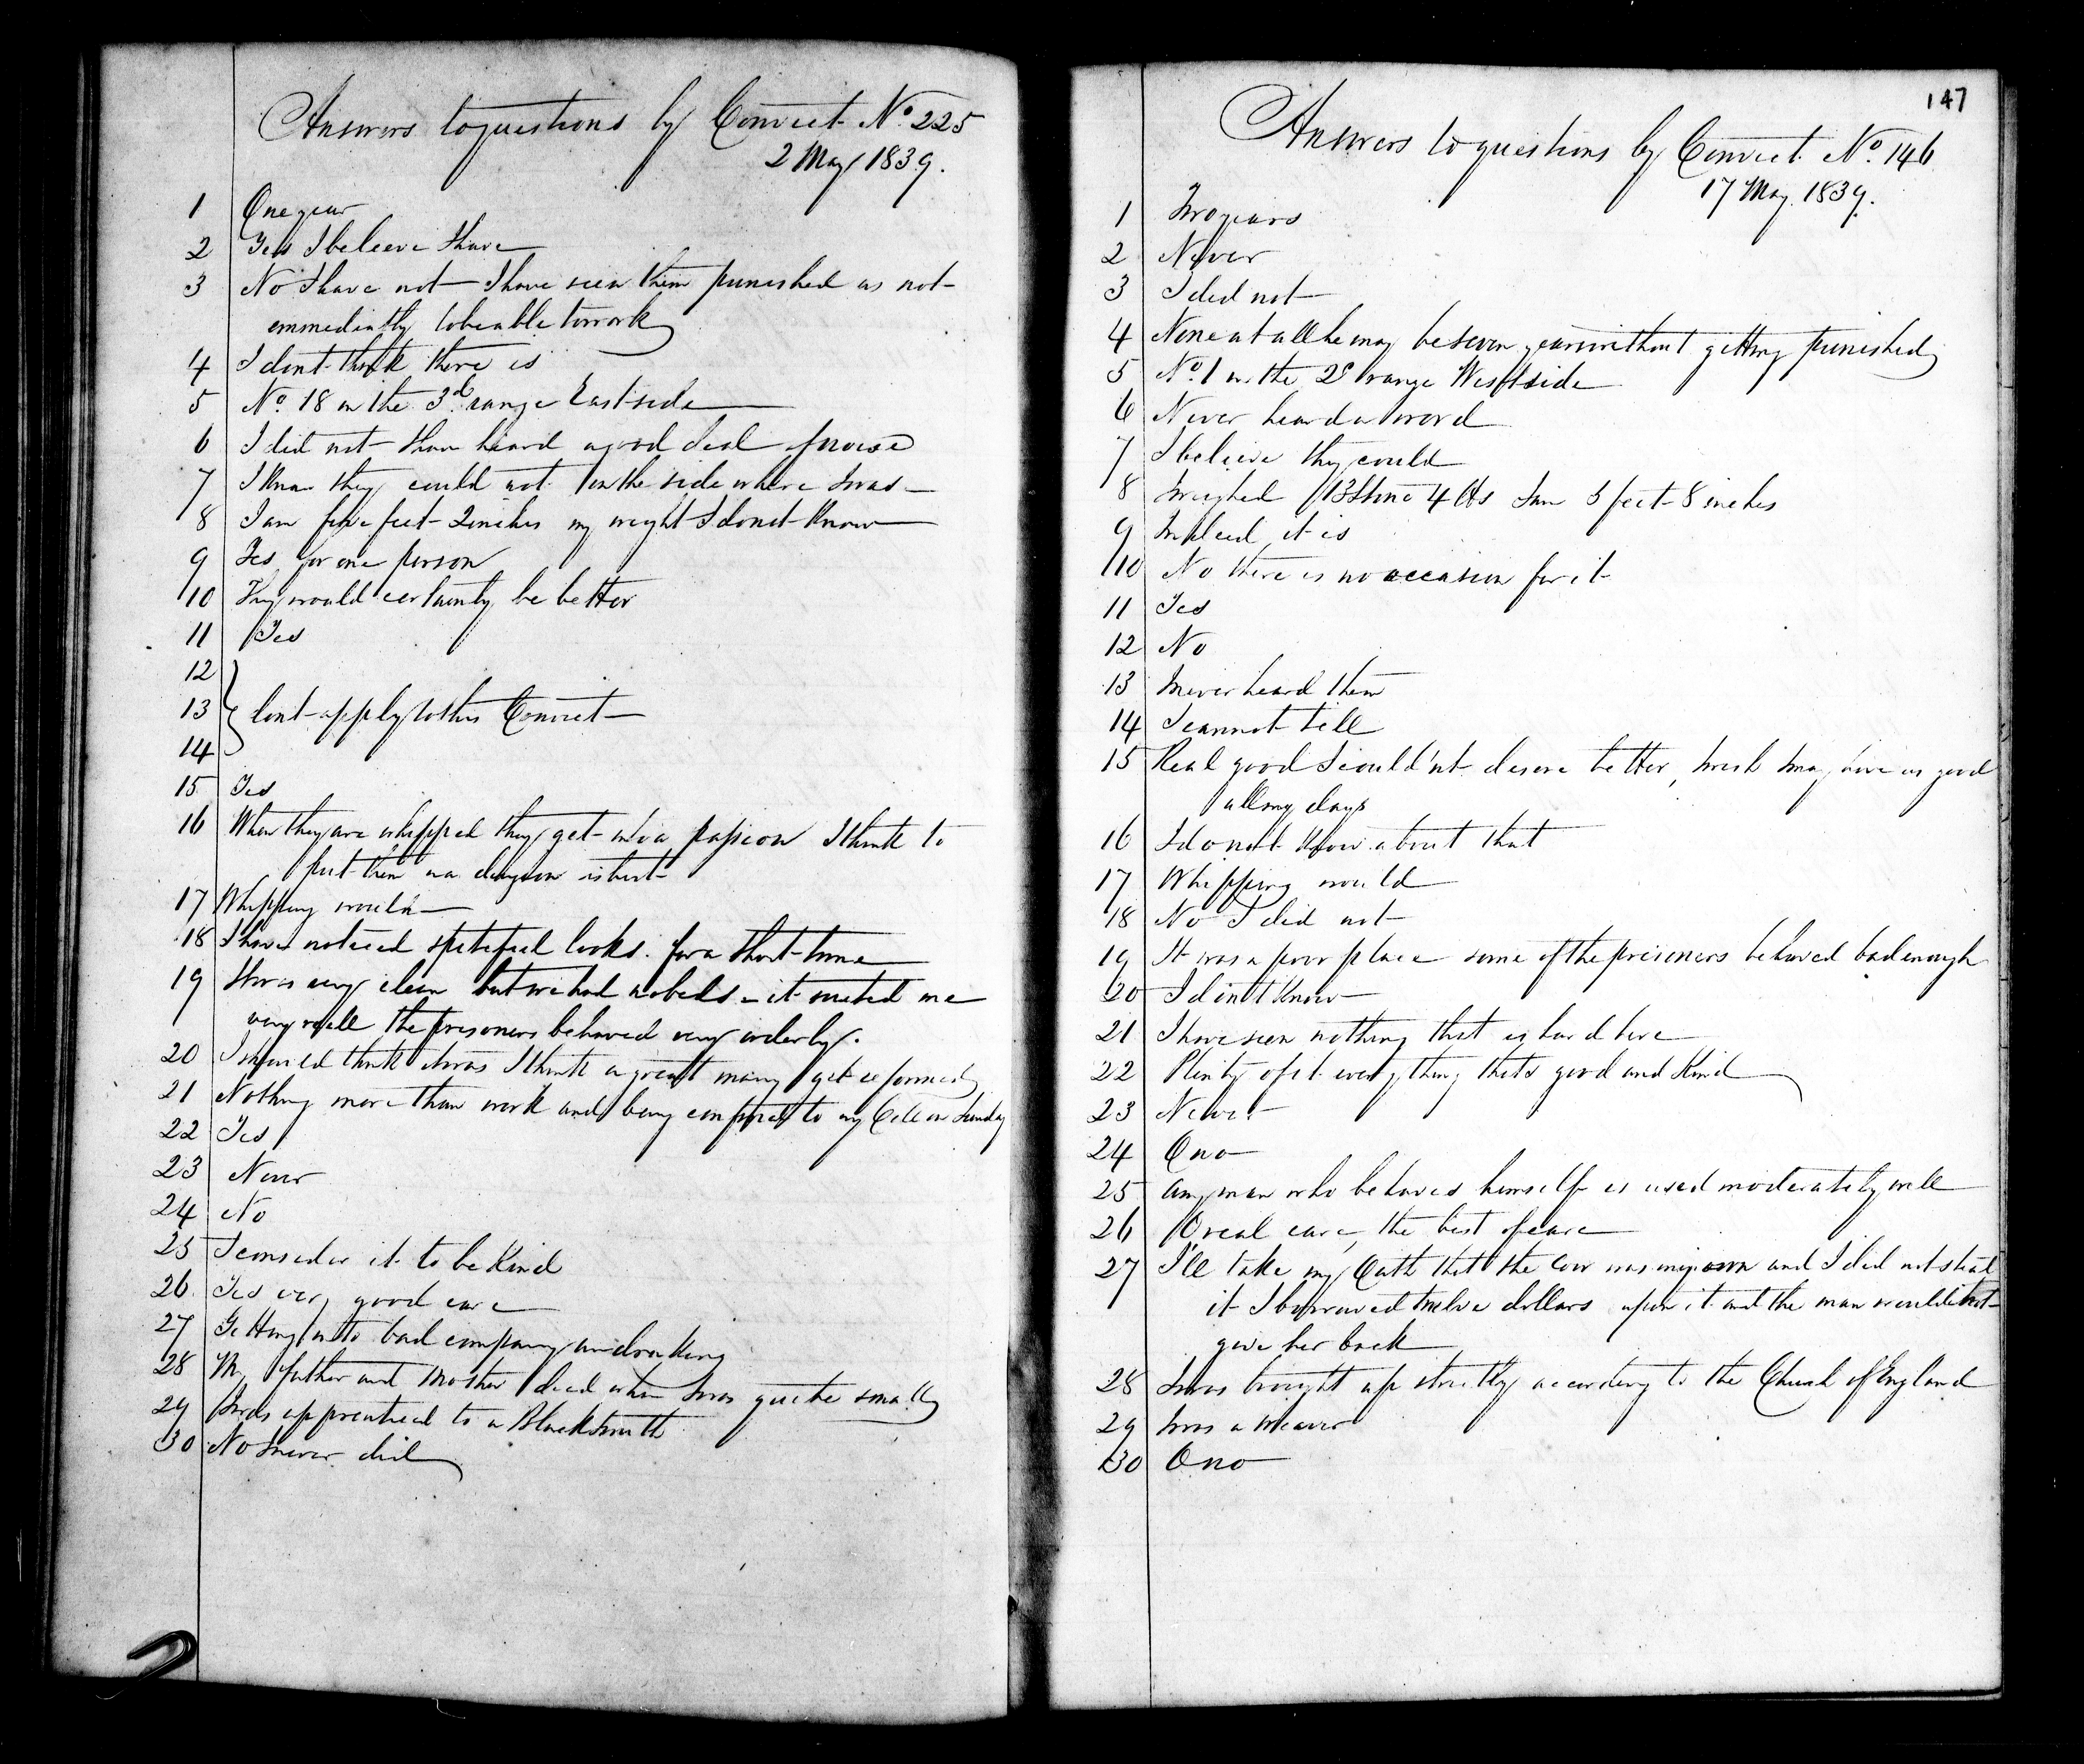 Answers to questions by Convict No. 225
2 May 1839.
1 One year
2 Yes I beleeve I have
3 No I have not I have seen them punished as not
emmediatly to be able to work
4 I dont think there is
5 No. 18 in the 3d. range East side
6 I did not I have heard a good deal of noise
7 I know they could not in the side where I was
8 I am five feet 2 inches my weight I do not know
9 Yes for one person
10 They would certainty be better
11 Yes
12
13 Dont apply to this Convict
14
15 Yes
16 When they are whipped they get into a passion I think to
put them in a dungeon is best
17 Whipping would
18 I have noticed spitefeul looks. for a short time
19 It was very clean but we had no beds - it suited me
very well the prisoners behaved very orderly.
20 I should think it was I think a great many get reformed
21 Nothing more than work and being confined to my Cell on Sunday
22 Yes
23 Never
24 No
25 I consider it to be Kind
26. Yes very good care
27 Getting into bad company and drinking
28 My father and Mother died when I was quite small
29 I was apprenticed to a Blacksmith
30 No I never did
147
Answers to questions by Convict No. 146
17 May. 1839.
1 Two years
2 Never
3 I did not
4 None at all he may be seven years without getting punished
5 No. 1 in the 2d range West side
6 Never heard a word
7 I believe they could
8 I weighed 13 Stone 4 lbs I am 5 feet 8 inches
9 Indeed it is
10 No there is no occasion for it
11 Yes
12 No
13 I never heard them
14 I cannot tell
15 Real good I could'nt desire better, I wish I may have as good
all my days
16 I do not know about that
17 Whipping would
18 No I did not
19 It was a poor place some of the prisoners behaved bad enough
20 I don't Know
21 I have seen nothing that is hard here
22 Plenty of it every thing thats good and Kind
23 Never
24 O no
25 Any man who behaves himself is used moderately well
26 O real care, the best of care
27 I'll take my Oath that the Cow was my own and I did not steal
it I borrowed twelve dollars upon it and the man would not
give her back
28 I was brought up strictly according to the Church of England
29 I was a Weaver
30 O no